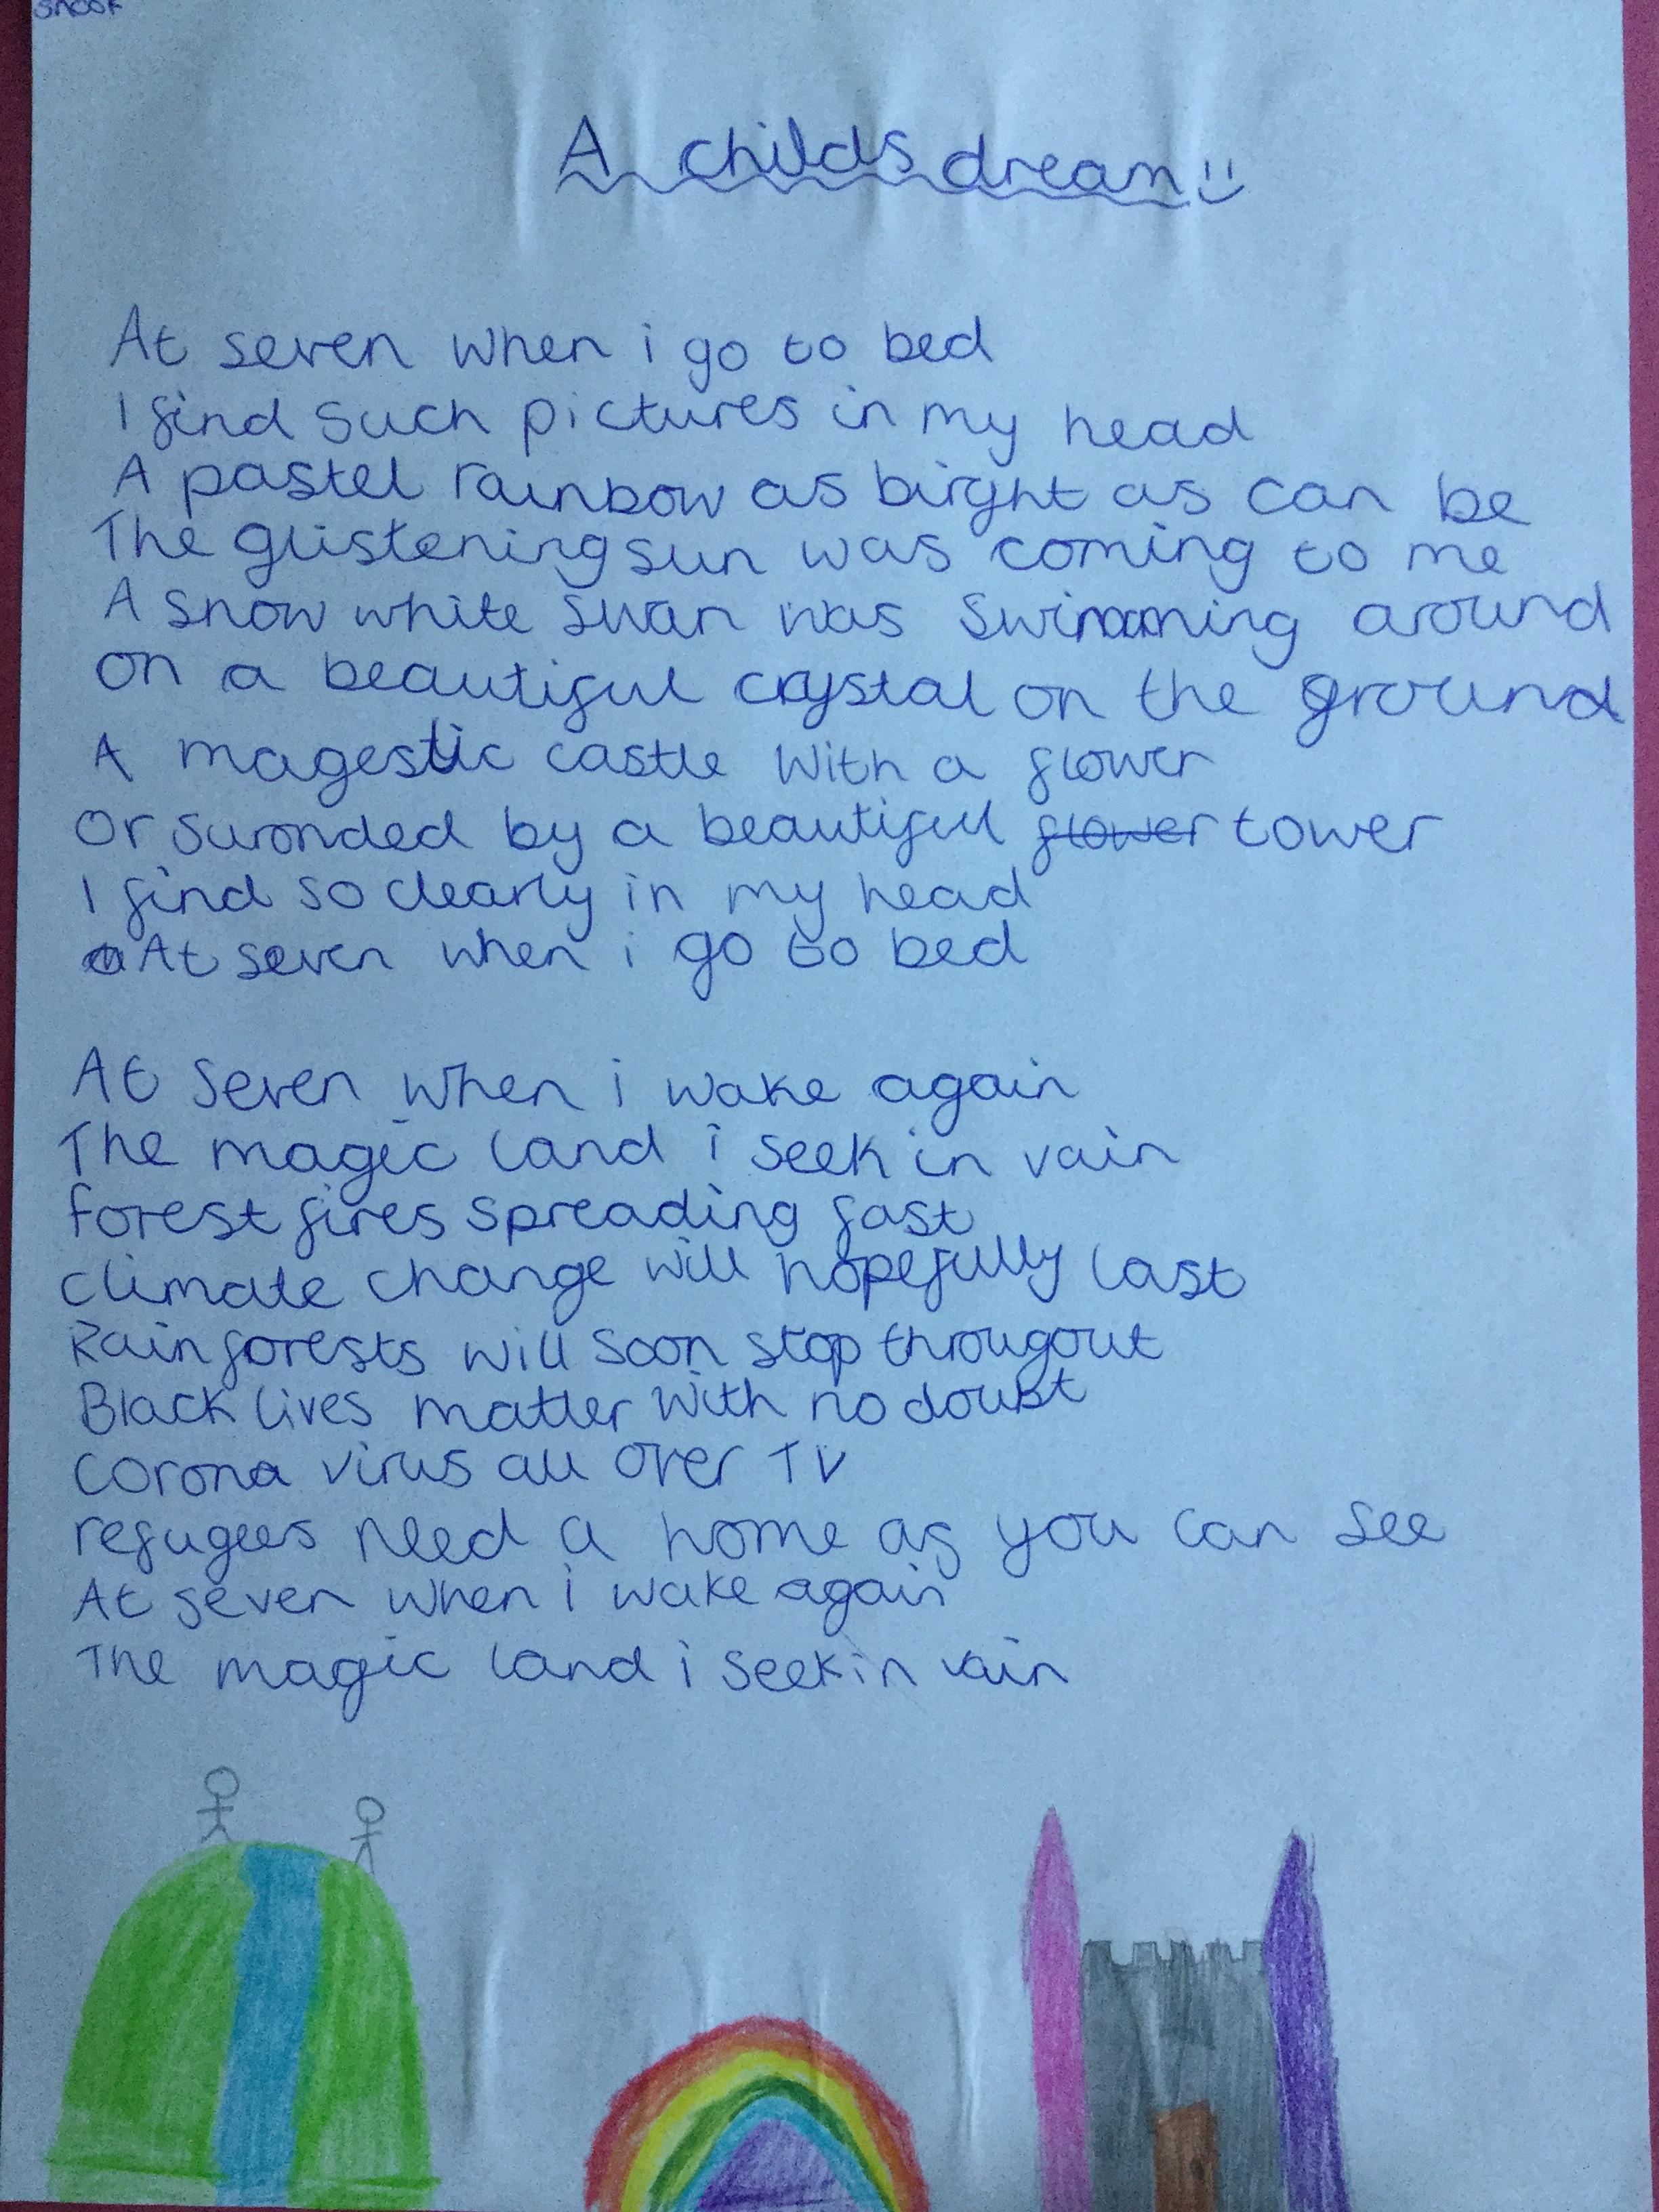 A childs dream
At seven when i go to bed
I find such pictures in my head
A pastel rainbow as birght as can be
The glistening sun was coming to me
A snow white swan was swimming around
on a beautiful crystal on the ground
A magestic castle with a flower
Or suronded by a beautiful flower tower
I find so clearly in my head
At seven when i go to bed
At seven when i wake again
The magic land i seek in vain
forest fires spreading fast
climate change will hopefully last
Rainforests will soon stop througout
Black lives matter with no doubt
corona virus all over TV
refugees need a home as you can see
At seven when i wake again
The magic land i seek in vain